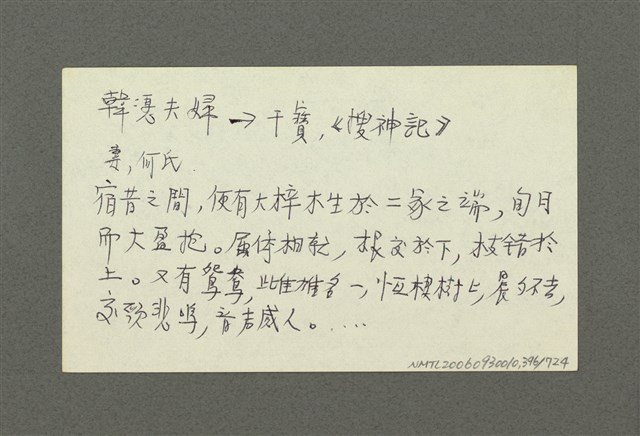 韓憑夫婦 → 干寶，《搜神記》
妻，何氏．
宿昔之間，便有大梓木生於二冢之端，旬月
而大盈抱。屈体相就，根交於下，枝錯於
上。又有鴛鴦，雌雄各一，恒棲樹上，晨夕不去，
交頸悲鳴，音声感人。．．．．．
NMTL20060930010.396/724